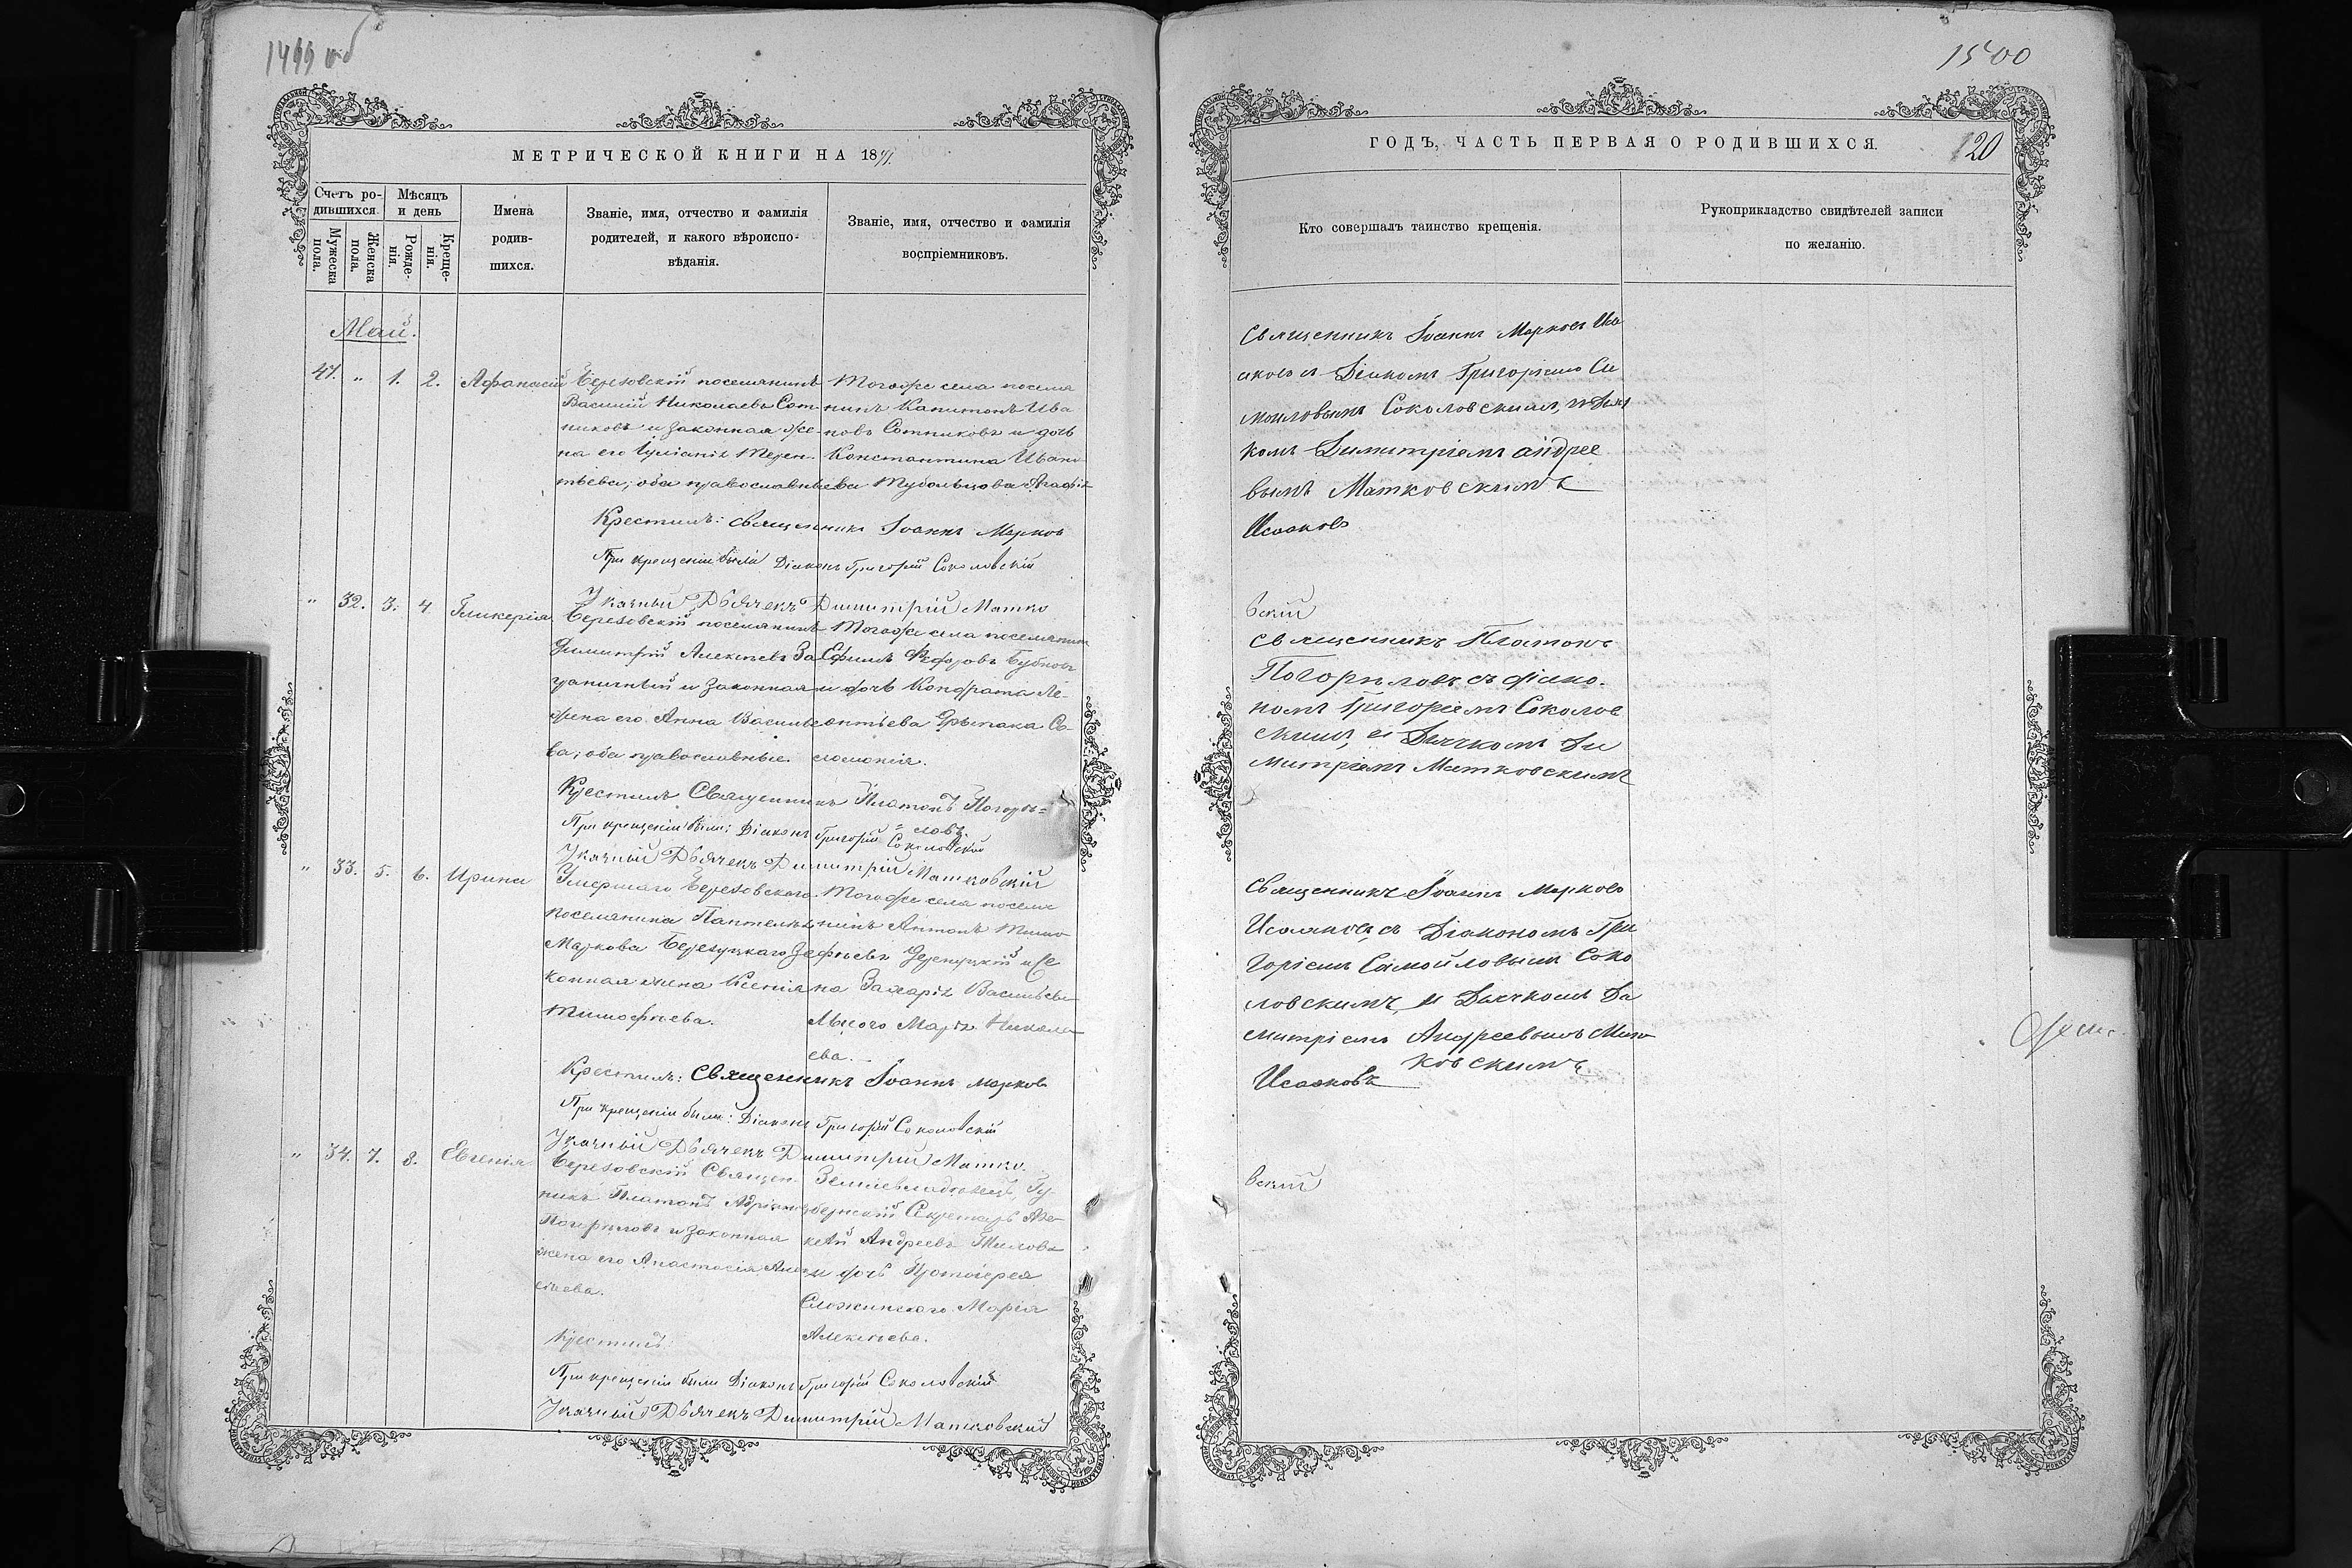 1499 об
МЕТРИЧЕСКОЙ КНИГИ НА 18
Счетъ ро-
дившихся.
Мѣсяцъ
и день
Мужеска
пола.
Женска
пола.
Рожде-
нія.
Креще-
нія.
Имена
родив-
шихся.
Званіе, имя, отчество и фамилія
родителей, и какого вѣроиспо-
вѣданія.
Званіе, имя, отчество и фамилія
воспріемниковъ.
Май.
47. " 1. 2. Афанасій
Березовскій поселянинъ
Василій Николаевъ Сот-
никовъ и законная же-
на его Іуліанія Терен-
тьева; оба православные
Тогоже села поселя
нинъ Капитонъ Ива
новъ Сотниковъ и дочь
Константина Ивано
ва Тубольцова Агафія
Крестилъ: Священникъ Іоаннъ Марковъ
При крещеніи были Діаконъ Григорій Соколовскій
Указный Дьячекъ Димитрій Матко
" 32. 3. 4. Гликерія
Березовскій поселянинъ
Димитрій Алексѣевъ За
граничный и законная
жена его Анна Василье
ва; оба православные.
Тогоже села поселянинъ
Ефимъ Федоровъ Бубновъ
и дочь Кондрата Ле-
онтьева Со-
ломонія.
Крестилъ Священникъ Платонъ Погорѣ-
ловъ
При крещеніи были: Діаконъ Григорій Соколовскій
Указный Дьячекъ Димитрій Матковскій
" 33. 5. 6. Ирина
Умершаго Березовскаго
поселянина Пантелея
Маркова Березуцкаго за
конная жена Ксенія
Тимофѣева.
Тогоже села поселя
нинъ Антонъ Тимо
фѣевъ
на Захарія Васильева
Марія Никола
ева.
Крестилъ: Священникъ Іоаннъ Марковъ
При крещеніи были: Діаконъ Григорій Соколовскій
Указный Дьячекъ Димитрій Матко
" 34. 7. 8. Евгенія
Березовскій Священ-
никъ Платонъ Адріановъ
Погорѣловъ и законная
жена его Анастасія Алек
сѣева.
Землевладѣлецъ, Гу-
бернскій Секретарь Але-
ксѣй Андреевъ
и дочь Протоіерея
Марія
Алексѣева.
Крестилъ
При крещеніи были Діаконъ Григорій Соколовскій
Указный Дьячекъ Димитрій Матковскій
1500
ГОДЪ, ЧАСТЬ ПЕРВАЯ О РОДИВШИХСЯ.
120
Кто совершалъ таинство крещенія.
Рукоприкладство свидѣтелей записи
по желанію.
Священникъ Іоаннъ Марковъ Иса
аковъ Діакономъ Григоріемъ Са
мойловымъ Соколовскимъ, и Дьяч
комъ Димитріемъ Андрее
вымъ Матковскимъ
Исааковъ
вскій
Священникъ Платонъ
Погорѣловъ съ діако-
номъ Григоріемъ Соколов
скимъ, и Дьячкомъ Ди
митріемъ Матковскимъ
Священникъ Іоаннъ Марковъ
Исааковъ, съ Діакономъ Гри
горіемъ Самойловымъ Соко
ловскимъ, и Дьячкомъ Ди
митріемъ Андреевымъ Мат
ковскимъ
Исааковъ
вскій